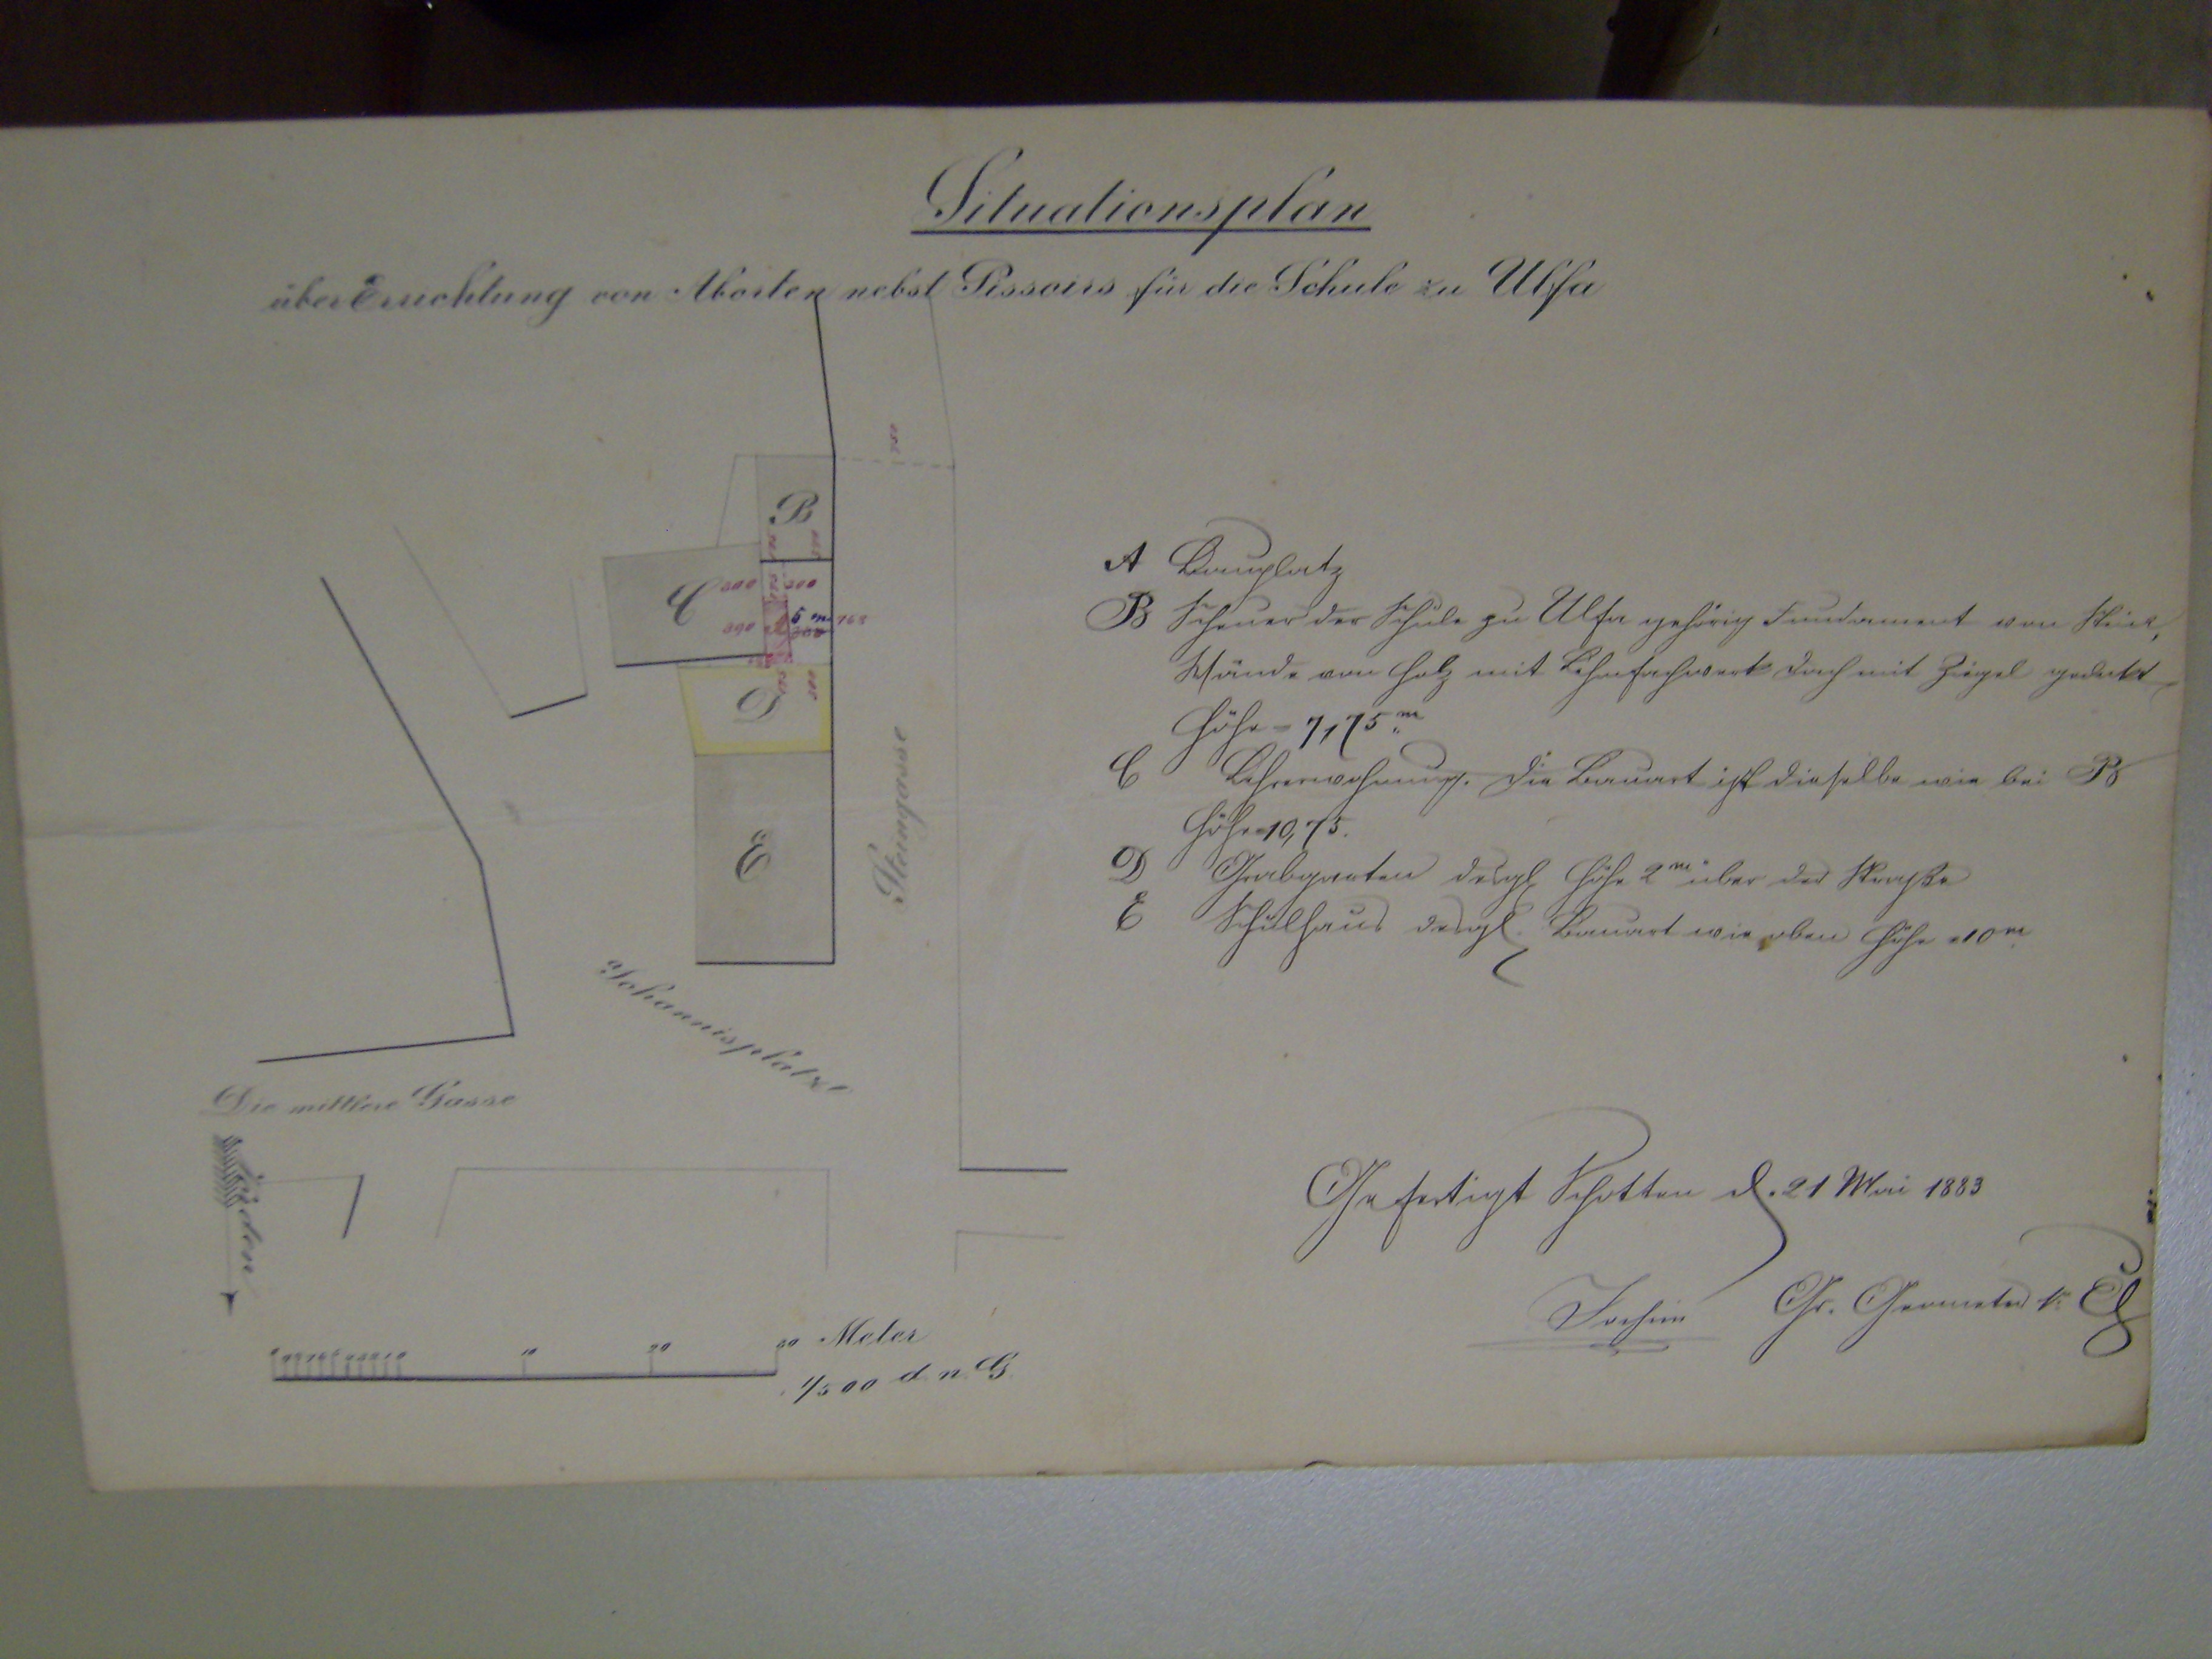 Situationsplan
über Errichtung von Aborten nebst Pissoirs für die Schule zu Ulfa
B
C
300
300
5 m
768
390
300
D
E
Steingasse
Johannisplatz
Die mittlere Gasse
Süden
10
20
30 Meter
1/500 d. n. G.
A Bauplatz
B Scheuer der Schule zu Ulfa gehörig Fundament von Stein,
Wände von Holz mit Lehmfachwerk Dach mit Ziegel gedeckt
Höhe = 7,75 m
C Lehrerwohnung. Die Bauart ist dieselbe wie bei B
Höhe = 10,75.
D Grabgarten desgl. Höhe 2 m über der Straße
E Schulhaus desgl. Bauart wie oben Höhe = 10 m
Gefertigt Schotten d. 21 Mai 1883
Gr. Geometer